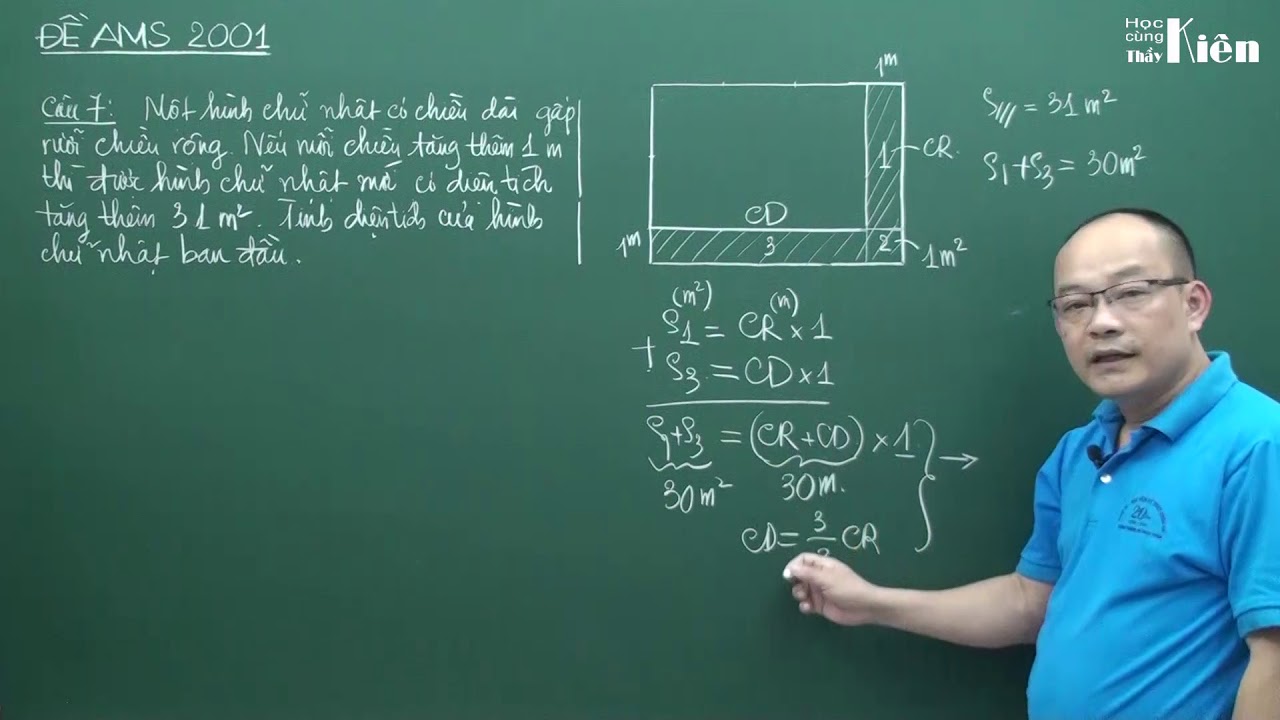 ĐỀ AMS 2001
Học
cùng
Thầy Kiên
Câu 7: Một hình chữ nhật có chiều dài gấp
rưỡi chiều rộng. Nếu mỗi chiều tăng thêm 1 m
thì được hình chữ nhật mới có diện tích
tăng thêm 31 m². Tính diện tích của hình
chữ nhật ban đầu.
1m
1 CR
CD
1m 3 2 1m²
S/// = 31 m²
S1+S3 = 30m²
(m²) (m)
S1 = CR × 1
+
S3 = CD × 1
S1+S3 = (CR+CD) × 1 →
30m² 30m.
CD = 3/2 CR
20